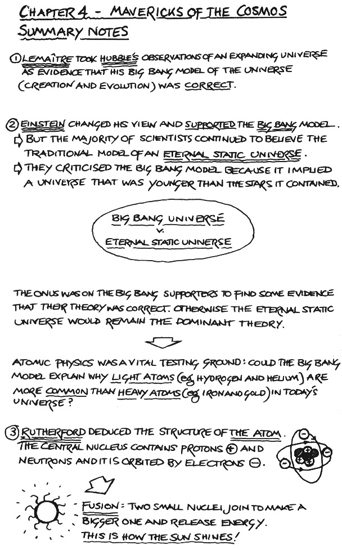 CHAPTER 4 - MAVERICKS OF THE COSMOS
SUMMARY NOTES
① LEMAÎTRE TOOK HUBBLE'S OBSERVATIONS OF AN EXPANDING UNIVERSE
AS EVIDENCE THAT HIS BIG BANG MODEL OF THE UNIVERSE
(CREATION AND EVOLUTION) WAS CORRECT.
② EINSTEIN CHANGED HIS VIEW AND SUPPORTED THE BIG BANG MODEL.
⇨ BUT THE MAJORITY OF SCIENTISTS CONTINUED TO BELIEVE THE
TRADITIONAL MODEL OF AN ETERNAL STATIC UNIVERSE.
⇨ THEY CRITICISED THE BIG BANG MODEL BECAUSE IT IMPLIED
A UNIVERSE THAT WAS YOUNGER THAN THE STARS IT CONTAINED.
BIG BANG UNIVERSE
v.
ETERNAL STATIC UNIVERSE
THE ONUS WAS ON THE BIG BANG SUPPORTERS TO FIND SOME EVIDENCE
THAT THEIR THEORY WAS CORRECT. OTHERWISE THE ETERNAL STATIC
UNIVERSE WOULD REMAIN THE DOMINANT THEORY.
ATOMIC PHYSICS WAS A VITAL TESTING GROUND: COULD THE BIG BANG
MODEL EXPLAIN WHY LIGHT ATOMS (eg HYDROGEN AND HELIUM) ARE
MORE COMMON THAN HEAVY ATOMS (eg IRON AND GOLD) IN TODAY'S
UNIVERSE?
③ RUTHERFORD DEDUCED THE STRUCTURE OF THE ATOM.
THE CENTRAL NUCLEUS CONTAINS PROTONS ⊕ AND
NEUTRONS AND IT IS ORBITED BY ELECTRONS ⊖.
FUSION: TWO SMALL NUCLEI JOIN TO MAKE A
BIGGER ONE AND RELEASE ENERGY.
THIS IS HOW THE SUN SHINES!